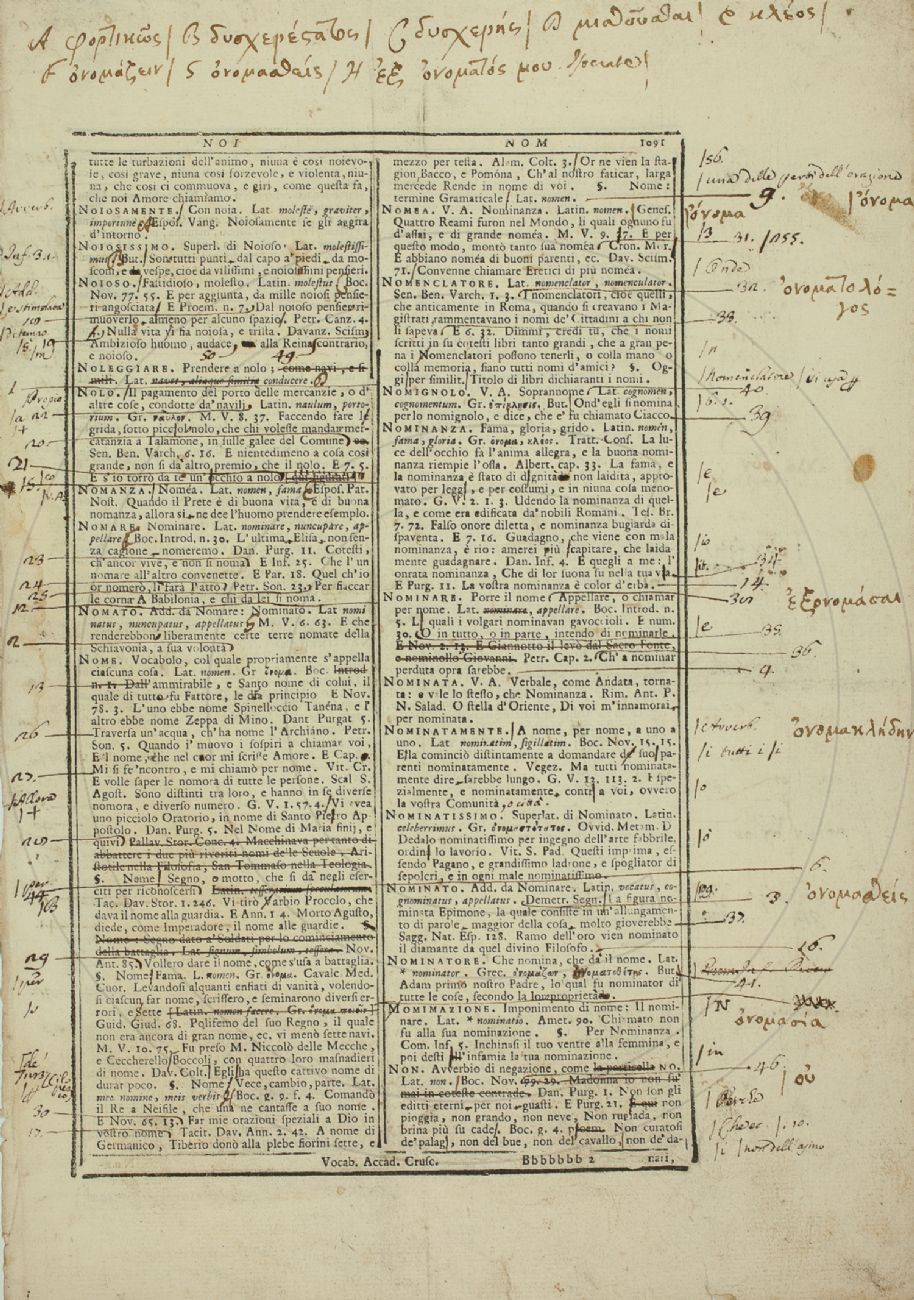 A φορτικῶς / B δυσχερέςατος / C δυσχερής / D μισθοῦσθαι / E κλέος /
F ὀνομάζειν / G ὀνομασθείς / H ἐξ ὀνοματός μου
NOI
NOM
1091
tutte le turbazioni dell'animo, niuna è così noievo-
le, così grave, niuna così forzevole, e violenta, niu-
na, che così ci commuova, e giri, come questa fa,
che noi Amore chiamiamo.
NOIOSAMENTE. Con noia. Lat. molestè, graviter,
importunè. Espos. Vang. Noiosamente se gli aggira
d'intorno.
NOIOSISSIMO. Superl. di Noioso. Lat. molestissi-
mus. But. Son tutti punti dal capo a' piedi da mo-
sconi, e da vespe, cioè da vilissimi, e noiosissimi pensieri.
NOIOSO. Fastidioso, molesto. Latin. molestus. Boc.
Nov. 77. 55. E per aggiunta, da mille noiosi pensie-
ri angosciata. E Proem. n. 7. Dal notoso pensieri
muoverlo, almeno per alcuno spazio. Petr. Canz. 4.
4. Nulla vita mi fia noiosa, e trista. Davanz. Scism.
Ambizioso huomo, audace, alla Reina contrario,
e noioso.
NOLEGGIARE. Prendere a nolo; come navi, e si-
mili. Lat. navet, aliaque similia conducere.
NOLO. Il pagamento del porto delle mercanzie, o d'
altre cose, condotte da' navili. Latin. naulum, porto-
rium. Gr. ναῦλος. M. V. 8. 37. Faccendo fare le
grida, sotto piccolo nolo, che chi volesse mandar mer-
catanzia a Talamone, in sulle galee del Comune
Sen. Ben. Varch. 6. 16. E nientedimeno a cosa così
grande, non si dà altro premio, che il nolo. E 7. 5.
E s'io torrò da te un cocchio a nolo,
NOMANZA. Noméa. Lat. nomen, fama. Espos. Pat.
Nost. Quando il Prete è di buona vita, e di buona
nomanza, allora si ne dee l'huomo prendere esemplo.
NOMARE. Nominare. Lat. nominare, nuncupare, ap-
pellare. Boc. Introd. n. 30. L'ultima, Elisa, non sen-
za cagione, nomeremo. Dan. Purg. 11. Cotesti,
ch'ancor vive, e non si noma. E Inf. 25. Che l'un
nomare all'altro convenette. E Par. 18. Quel ch'io
or nomerò, lì farà l'atto. Petr. Son. 23. Per fiaccar
le corna A Babilonia, e chi da lei si noma.
NOMATO. Add. da Nomare: Nominato. Lat. nomi
natus, nuncupatus, appellatus. M. V. 6. 63. E che
renderebbon liberamente certe terre nomate della
Schiavonia, a sua volontà.
NOME. Vocabolo, col quale propriamente s'appella
ciascuna cosa. Lat. nomen. Gr. ὄνομα. Boc. Introd
n. 1. Dall'ammirabile, e Santo nome di colui, il
quale di tutto fu Fattore, le dea principio. E Nov.
78. 3. L'uno ebbe nome Spinelloccio Tanéna, e l'
altro ebbe nome Zeppa di Mino. Dant Purgat 5.
Traversa un'acqua, ch'ha nome l'Archiáno. Petr.
Son. 5. Quando i' muovo i sospiri a chiamar voi,
E'l nome, che nel cuor mi scrisse Amore. E Cap.
Mi si fe'ncontro, e mi chiamò per nome. Vit. Cr.
E volle saper le nomora di tutte le persone. Scal S.
Agost. Sono distinti tra loro, e hanno in se diverse
nomora, e diverso numero. G. V. 1. 57. 4. Vi avea
uno picciolo Oratorio, in nome di Santo Pietro Ap
postolo. Dan. Purg. 5. Nel Nome di Maria finij, e
quivi. Pallav. Stor. Conc. 4. Macchinava pertanto di
abbattere i due più riveriti nomi delle Scuole, Ari-
stotile nella Filosofia, San Tommaso nella Teologia.
§. Nome. Segno, o motto, che si dà negli eser-
citi per riconoscersi. Latin. tesseram, speculatoriam.
Tac. Dav. Stor. 1. 246. Vi tirò Varbio Procolo, che
dava il nome alla guardia. E Ann. 1 4. Morto Agusto,
diede, come Imperadore, il nome alle guardie. §.
Nome: Segno dato a' Soldati per lo cominciamento
della battaglia. Lat. signum, simbolum, tessera. Nov.
Ant. 85. Vollero dare il nome, come s'usa a battaglia.
§. Nome. Fama. L. nomen. Gr. ὄνομα. Cavalc. Med.
Cuor. Levandosi alquanti enfiati di vanità, volendo-
si ciascun far nome, scrissero, e seminarono diversi er-
rori, e Sette. Latin. nomen facere. Gr. ὄνομα ποιεῖν
Guid. Giud. 68. Polifemo del suo Regno, il quale
non era ancora di gran nome, ec. vi menò sette navi.
M. V. 10. 75. Fu preso M. Niccolò delle Mecche,
e Ceccherello Boccoli, con quattro loro masnadieri
di nome. Dav. Colt. Egli ha questo cattivo nome di
durar poco. §. Nome. Vece, cambio, parte. Lat.
meo nomine, meis verbis. Boc. g. 9. f. 4. Comandò
il Re a Neifile, che una ne cantasse a suo nome.
E Nov. 65. 13. Far mie orazioni speziali a Dio in
vostro nome. Tacit. Dav. Ann. 2. 42. A nome di
Germanico, Tiberio donò alla plebe fiorini sette, e
mezzo per testa. Alam. Colt. 3. Or ne vien la sta-
gion, Bacco, e Pomóna, Ch'al nostro faticar, larga
mercede Rende in nome di voi. §. Nome:
termine Gramaticale. Lat. nomen.
NOMEA. V. A. Nominanza. Latin. nomen. Genes.
Quattro Reami furon nel Mondo, li quali ognuno fu
d'assai, e di grande noméa. M. V. 9. 17. E per
questo modo, montò tanto sua noméa. Cron. M. 1.
E abbiano noméa di buoni parenti, ec. Dav. Scism.
71. Convenne chiamare Eretici di più noméa.
NOMENCLATORE. Lat. nomenclator, nomenculator.
Sen. Ben. Varch. 1. 3. I nomenclatori, cioè quelli,
che anticamente in Roma, quando si creavano i Ma-
gistrati, rammentavano i nomi de' Cittadini a chi non
gli sapeva. E 6. 32. Dimmi, credi tu, che i nomi
scritti in su cotesti libri tanto grandi, che a gran pe-
na i Nomenclatori possono tenerli, o colla mano o
colla memoria, siano tutti nomi d'amici? §. Og-
gi, per similit. Titolo di libri dichiaranti i nomi.
NOMIGNOLO. V. A. Soprannome. Lat. cognomen,
cognomentum. Gr. ἐπίκλησις. But. Ond'egli si nomina
per lo nomignolo, e dice che e' fu chiamato Ciacco.
NOMINANZA. Fama, gloria, grido. Latin. nomen,
fama, gloria. Gr. ὄνομα, κλέος. Tratt. Cons. La lu-
ce dell'occhio fa l'anima allegra, e la buona nomi-
nanza riempie l'ossa. Albert. cap. 33. La fama, e
la nominanza è stato di dignità, non laidita, appro-
vato per leggi, e per costumi, e in niuna cosa meno-
mato. G. V. 2. 1. 3. Udendo la nominanza di quel-
la, e come era edificata da' nobili Romani. Tes. Br.
7. 72. Falso onore diletta, e nominanza bugiarda di-
spaventa. E 7. 16. Guadagno, che viene con mala
nominanza, è rio: amerei più scapitare, che laida
mente guadagnare. Dan. Inf. 4. E quegli a me: l'
onrata nominanza, Che di lor suona su nella tua vita.
E Purg. 11. La vostra nominanza è color d'erba.
NOMINARE. Porre il nome. Appellare, o chiamar
per nome. Lat. nominare, appellare. Boc. Introd. n.
5. Li quali i volgari nominavan gavoccioli. E num.
30. O in tutto, o in parte, intendo di nominarle.
E Nov. 2. 13. E Giannotto il levò dal Sacro Fonte,
e nominollo Giovanni. Petr. Cap. 2. Ch'a nominar
perduta opra sarebbe.
NOMINATA. V. A. Verbale, come Andata, torna-
ta: e vale lo stesso, che Nominanza. Rim. Ant. P.
N. Salad. O stella d'Oriente, Di voi m'innamorai,
per nominata.
NOMINATAMENTE. A nome, per nome, a uno a
uno. Lat. nominatim, sigillatim. Boc. Nov. 15. 15.
Ella cominciò distintamente a domandare de' suoi pa-
renti nominatamente. Vegez. Ma tutti nominata-
mente dire, sarebbe lungo. G. V. 12. 113. 2. E spe-
zialmente, e nominatamente, contra a voi, ovvero
la vostra Comunità,
NOMINATISSIMO. Superlat. di Nominato. Latin.
celeberrimus. Gr. ὀνομαστότατος. Ovvid. Metam. D
Dedalo nominatissimo per ingegno dell'arte fabbrile,
ordinò lo lavorio. Vit. SS. Pad. Questi imprima, es-
sendo Pagano, e grandissimo ladrone, e spogliator di
sepolcri, e in ogni male nominatissimo.
NOMINATO. Add. da Nominare. Latin. vocatus, co-
gnominatus, appellatus. Demetr. Segn. La figura no-
minata Epimone, la quale consiste in un'allungamen-
to di parole, maggior della cosa, molto gioverebbe
Sagg. Nat. Esp. 128. Ramo dell'oro vien nominato
il diamante da quel divino Filosofo.
NOMINATORE. Che nomina, che dà il nome. Lat.
* nominator. Grec. ὀνομάζων, ὀνοματοθέτης. But.
Adam primo nostro Padre, lo qual fu nominator di
tutte le cose, secondo la lor proprietà.
MOMINAZIONE. Imponimento di nome: Il nomi-
nare. Lat. * nominatio. Amet. 90. Chiamato non
fu alla sua nominazione. §. Per Nominanza.
Com. Inf. 5. Inchinasi il tuo ventre alla femmina, e
poi desti all'infamia la tua nominazione.
NON. Avverbio di negazione, come la particella NO.
Lat. non. Boc. Nov. 69. 29. Madonna io non fu'
mai in coteste contrade. Dan. Purg. 1. Non son gli
editti eterni, per noi, guasti. E Purg. 21. E qui non
pioggia, non grando, non neve, Non rugiada, non
brina più su cade. Boc. g. 4. poem. Non curatosi
de' palagi, non del bue, non del cavallo, non de' da-
Vocab. Accad. Crusc.
Bbbbbbb 2
nari,
/ 56.
/ una delle parti dell'orazione
9.
ὄνομα
/ ὄνομα
31. / 155.
/ Onde
32.
ὀνοματολό=
γος
38.
/ n
39
/ e
/ e
/ io
34.
14.
ἐξονομάσαι
/ e
35.
36.
9.
ὀνομακλήδην
/ i tutti i /i
/ o
/ o
6.
3.
ὀνομασθείς
37.
16.
41.
/ N
ὀνομασία
/ in
46.
/ οὐ
/ i non dell'asino
50
49
20
21
23
24
25
12
2
13
26
29
30